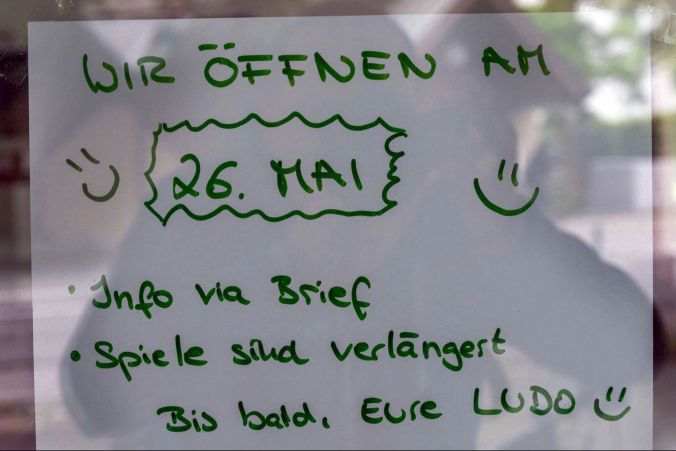 WIR ÖFFNEN AM
26. MAI
• Info via Brief
• Spiele sind verlängert
Bis bald, Eure LUDO